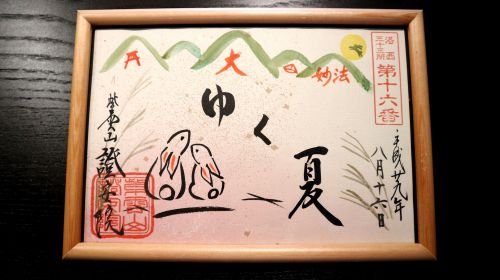 洛西
三十三所
第十六番
大
妙法
ゆく
夏
平成廿九年
八月十六日
紫雲山
證安院